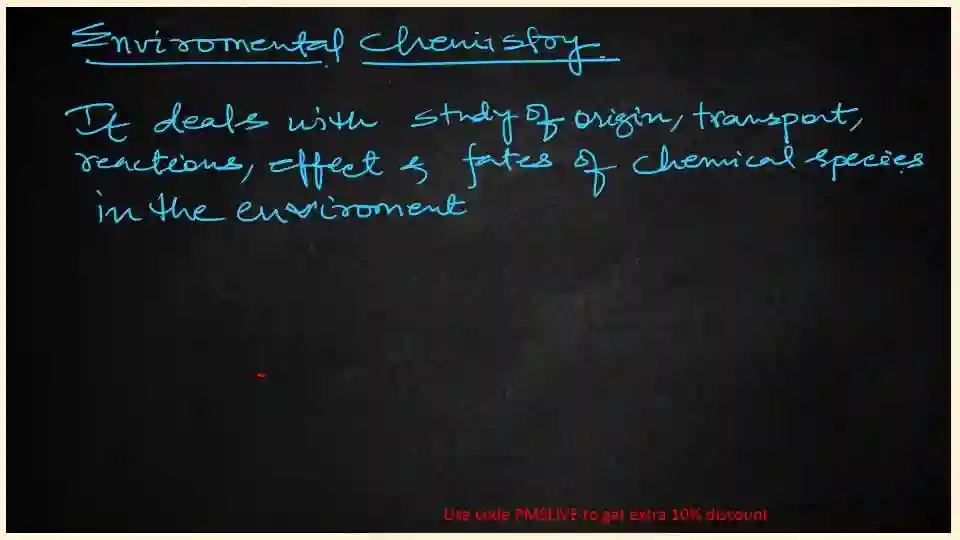 Enviromental Chemistry.
It deals with study of origin, transport,
reactions, effect & fates of chemical species
in the enviroment
Use code PMSLIVE to get extra 10% discount